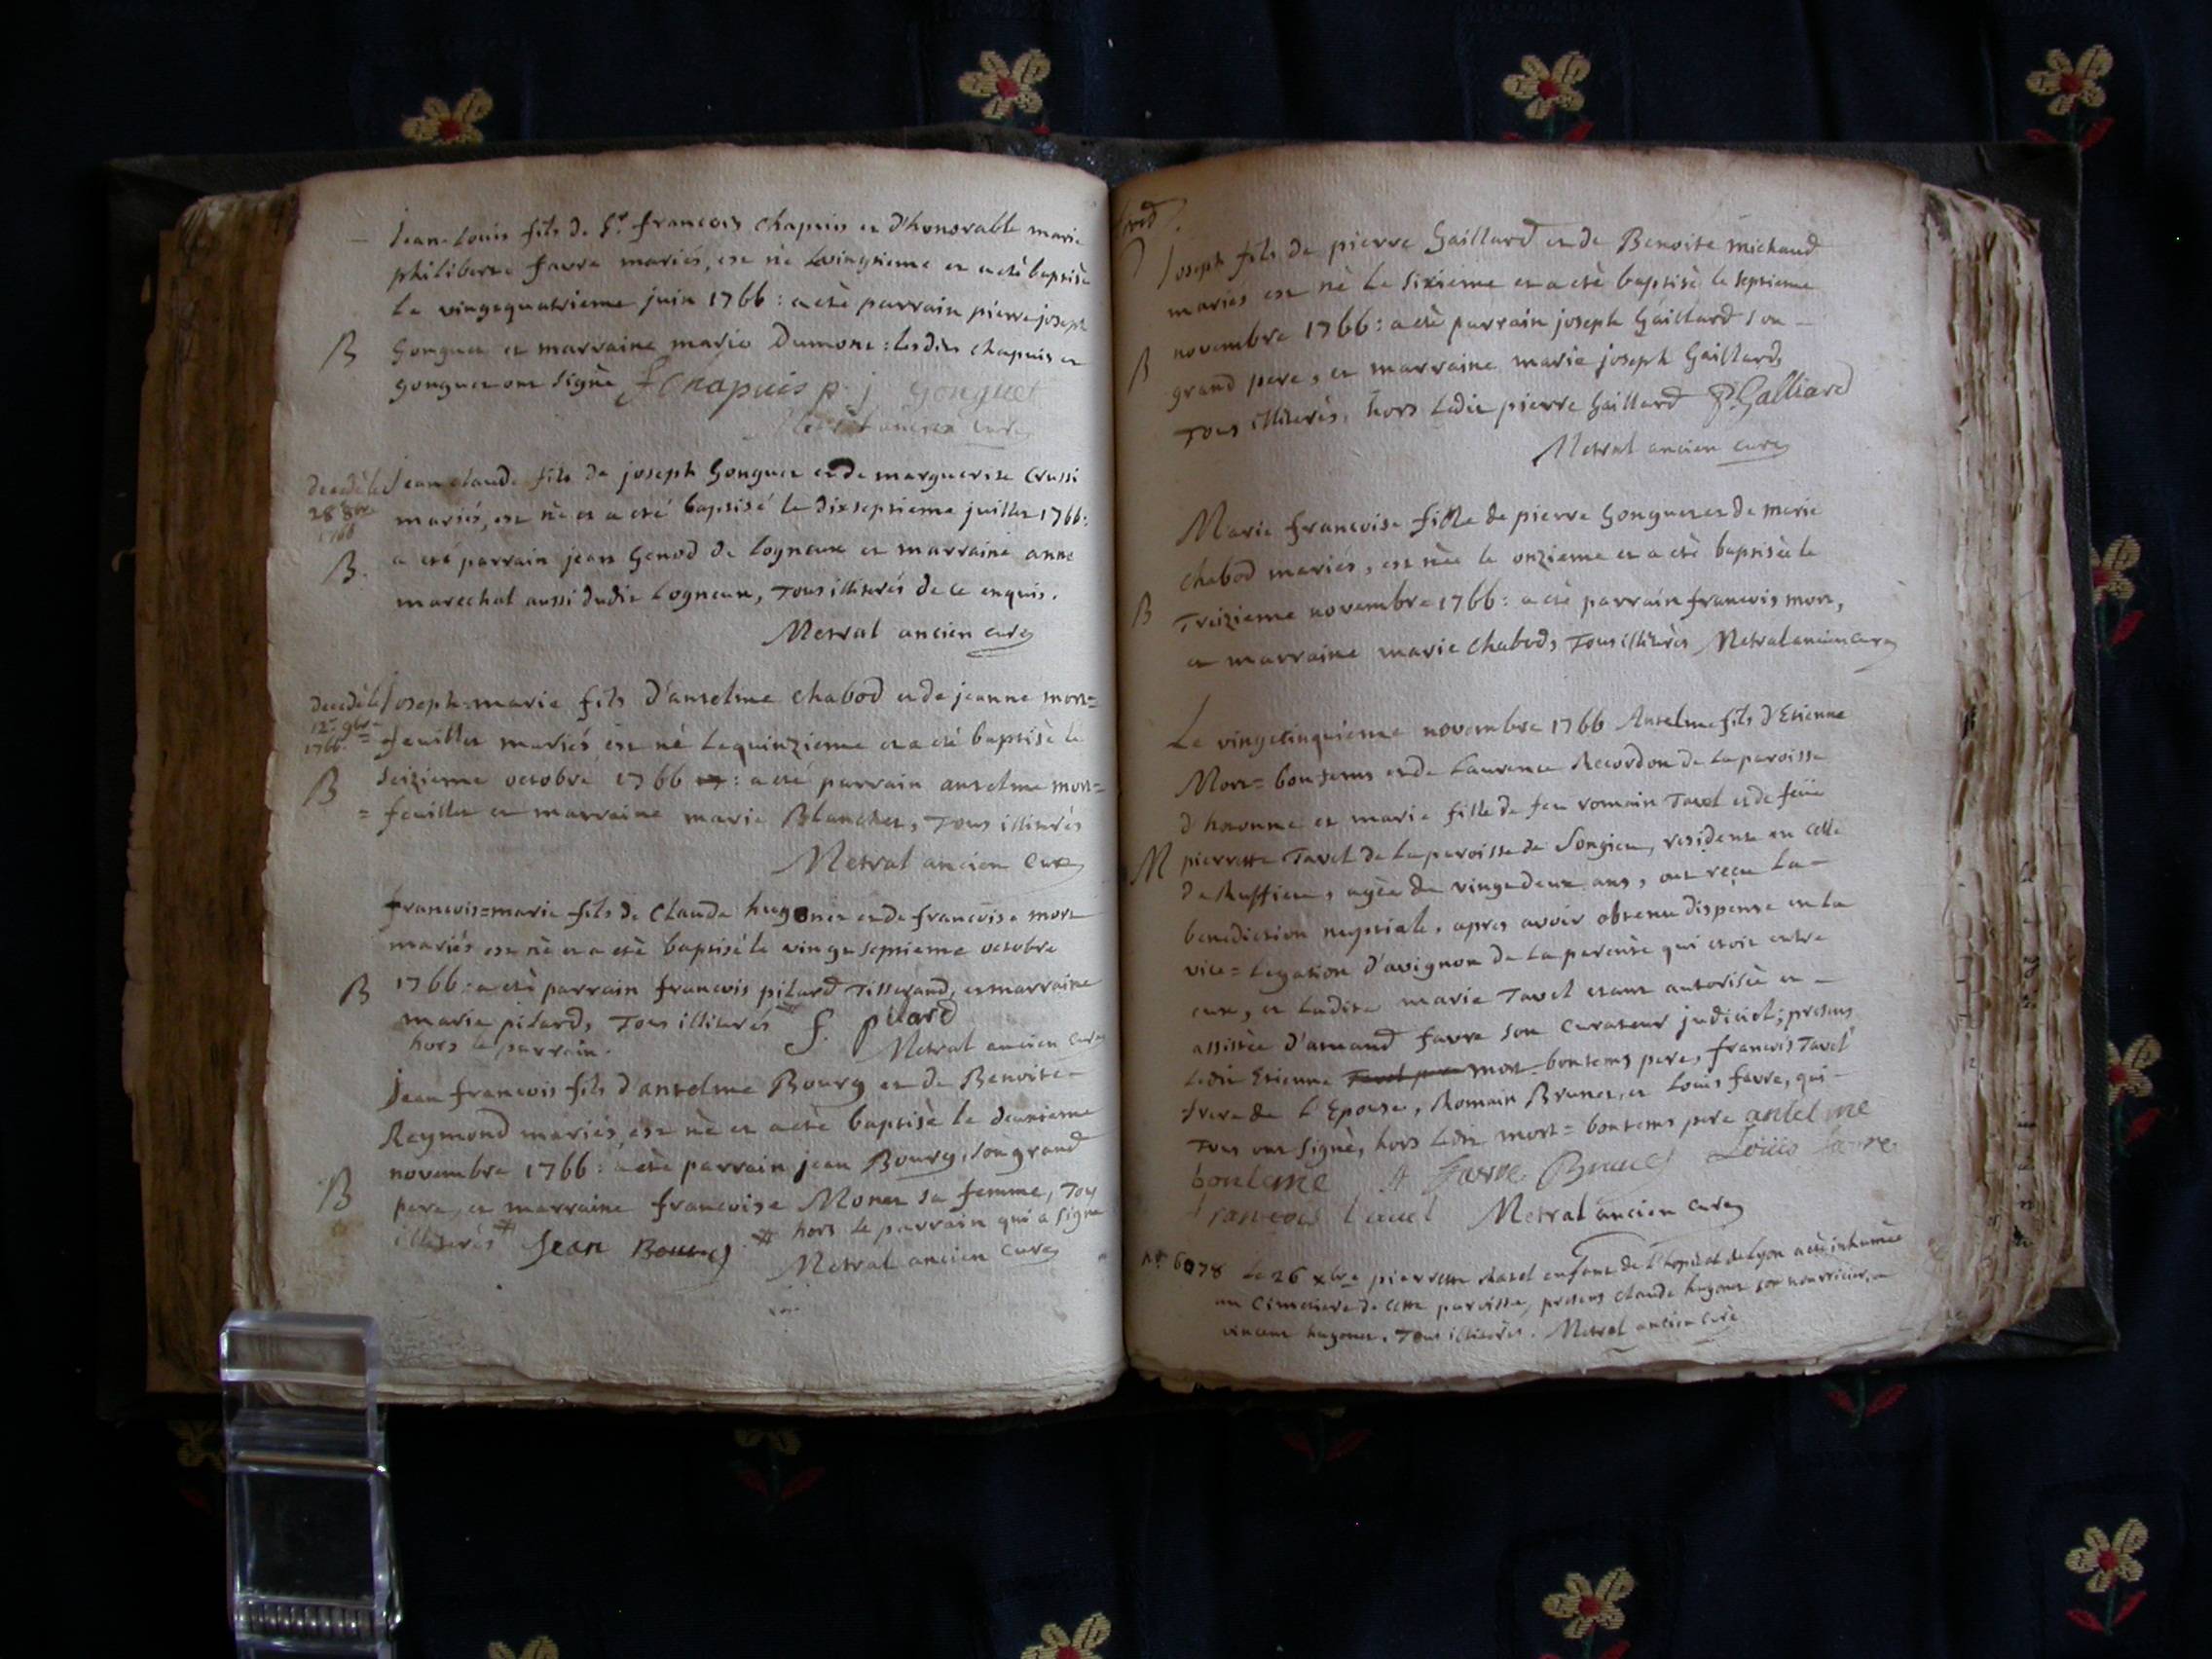 Jean-Louis fils de Sr. francois chapuis et d'honorable marie
philiberte favre mariés, est né le vingtieme et a eté baptisé
Le vingtquatrieme juin 1766: a eté parrain pierre joseph
B Gonguet et marraine marie Dumont: lesdits chapuis et
gonguet ont signé f Chapuis p. j Gonguet
Metral ancien curé
decedé le Jean claude fils de joseph Gonguet et de marguerite Crussi
28 8bre mariés, est né et a eté baptisé le dixseptieme juillet 1766:
1766
B. a eté parrain jean Genod de Logneux et marraine anne
marechal aussi dudit Logneux, Tous illiterés de ce enquis.
Metral ancien curé
decedé le Joseph=marie fils d'anselme chabod et de jeanne mort=
12e 9bre
1766. = feuillet mariés est né le quinzieme et a eté baptisé le
B seizieme octobre 1766: a eté parrain anselme mort=
= feuillet et marraine marie Blanchet, Tous illiterés
Metral ancien Curé
francois=marie fils de Claude hugonet et de francoise mort
mariés est né et a eté baptisé le vingt septieme octobre
B 1766: a eté parrain francois pitard Tisserand, et marraine
marie pitard, Tous illiterés f. pitard
hors le parrain. Metral ancien curé
Jean francois fils d'anselme Bourg et de Benoite
Reymond mariés, est né et a eté baptisé le deuxieme
novembre 1766: a eté parrain jean Bourg, son grand
B pere, et marraine francoise Monet sa femme, Tous
illiterés # Jean Bourg # hors le parrain qui a signé
Metral ancien Curé
Joseph fils de pierre Gaillard et de Benoite michaud
mariés est né le sixieme et a eté baptisé le septieme
novembre 1766: a eté parrain joseph Gaillard son
B grand pere, et marraine marie joseph Gaillard,
Tous illiterés, hors ledit pierre Gaillard P. Galliard
Metral ancien curé
Marie francoise fille de pierre Gonguet et de marie
chabod mariés, est née le onzieme et a eté baptisée le
B Treizieme novembre 1766: a eté parrain francois mort,
et marraine marie chabod, Tous illiterés Metral ancien curé
Le vingtcinquieme novembre 1766 Anselme fils d'Etienne
Mort=bontems et de Laurence Recordon de la paroisse
d'hotonne et marie fille de feu romain Tavel et de feüe
M pierrette Tavel de la paroisse de Songieu, residente en celle
de Ruffieu, agée de vingtdeux ans, ont reçu la
benediction nuptiale, apres avoir obtenu dispense en la
vice=legation d'avignon de la parenté qui etoit entre
eux, et ladite marie Tavel etant autorisée et
assistée d'amand favre son curateur judiciel; presens
ledit Etienne mort=bontems pere, francois Tavel
frere de l'Epouse, Romain Brunet, et Louis favre, qui
Tous ont signé, hors ledit mort=bontems pere antelme
bonteme A favre Brunet Louis favre
francois tavel Metral ancien curé
No. 6078 Le 26 xbre pierrette enfant de l'hopital de Lyon a eté inhumée
au Cimetiere de cette paroisse, presens claude hugonet son nourricier, et
vincent hugonet, Tous illiterés. Metral ancien curé